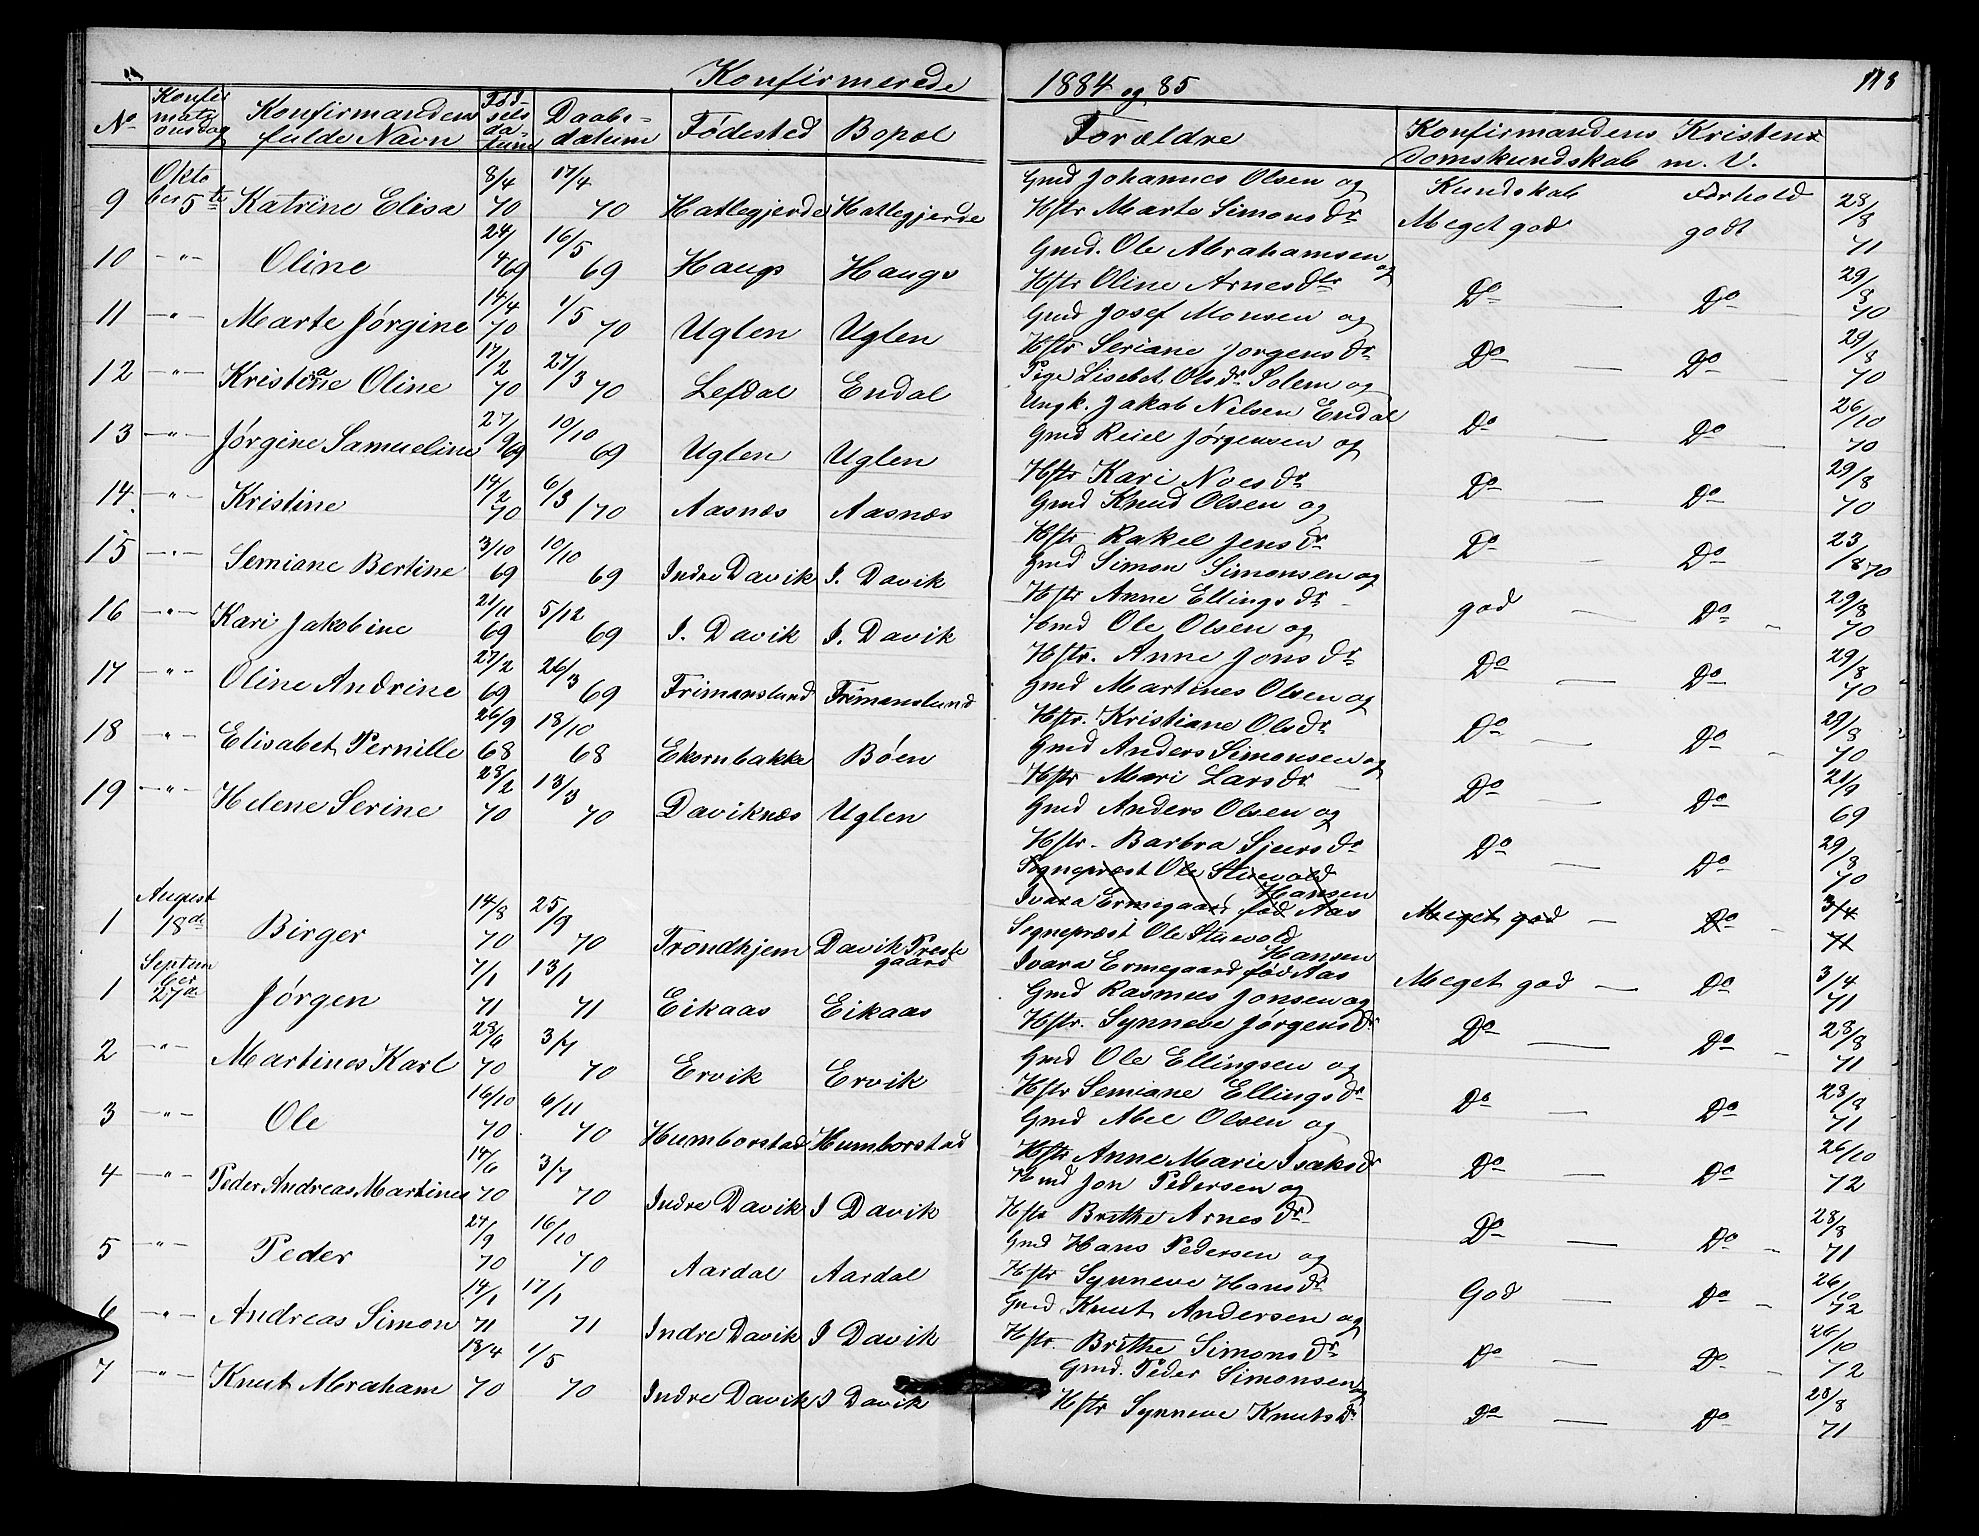 Konfirmerede 1884 og 85 118
No Konfirmationsdag Konfirmandens fulde Navn Fødselsdatum Daabsdatum Fødested Bopæl Forældre Konfirmandens Kristendomskundskab m. V.
Kundskab Forhold
9 Oktober 5te Katrine Elisa 8/4 70 17/4 70 Hatlegjerde Hatlegjerde Gmd Johannes Olsen og Hstr Marte Simonsdr Meget god godt 28/8 71
10 -"- Oline 24/4 69 16/5 69 Haugs Haugs Gmd. Ole Abrahamsen og Hstr Oline Arnesdtr Do — Do 29/8 70
11 -"- Marte Jørgine 14/4 70 1/5 70 Uglen Uglen Gmd Josef Monsen og Hstr Seriane Jørgensdr Do — Do 29/8 70
12 -"- Kristine Oline 17/2 70 27/3 70 Lefdal Endal Pige Lisebet Olsdr Solem og Ungk. Jakob Nelsen Endal Do — Do 26/10 70
13 -"- Jørgine Samueline 27/9 69 10/10 69 Uglen Uglen Gmd Reiel Jørgensen og Hstr Kari Noesdr Do — Do 29/8 70
14 -"- Kristine 14/2 70 6/3 70 Aasnæs Aasnæs Gmd Knud Olsen og Hstr Rakel Jensdr Do — Do 23/8 70
15 -"- Semiane Bertine 3/10 69 10/10 69 Indre Davik I. Davik Gmd Simon Simonsen og Hstr Anne Ellingsdr god — Do 29/8 70
16 -"- Kari Jakobine 21/11 69 5/12 69 I. Davik I. Davik Hmd Ole Olsen og Hstr. Anne Jonsdr Do — Do 29/8 70
17 -"- Oline Andrine 27/2 69 26/3 69 Frimanslund Frimanslund Gmd Martines Olsen og Hstr. Kristiane Olsdr Do — Do 29/8 70
18 -"- Elisabet Pernille 26/9 68 18/10 68 Ekornbakke Bøen Gmd Anders Simonsen og Hstr Mari Larsdr Do — Do 21/9 69
19 -"- Helene Serine 23/2 70 13/3 70 Daviknæs Uglen Gmd Anders Olsen og Hstr. Barbra Sjursdr Do — Do 29/8 70
Sognepræst Ole Stuevold Hansen
Ivara Ermegaard fød Aas Meget god — Do 3/4 71
1 August 18de Birger 14/8 70 25/9 70 Trondhjem Davik Prestegaard Sognepræst Ole Stuevold Hansen Ivara Ermegaard fød Aas Meget god — Do 3/4 71
1 September 27de Jørgen 7/1 71 13/1 71 Eikaas Eikaas Gmd Rasmus Jonsen og Hstr. Synneve Jørgensdr Do — Do 28/8 71
2 -"- Martines Karl 23/6 70 3/7 70 Ervik Ervik Gmd Ole Ellingsen og Hstr Semiane Ellingsdr Do — Do 28/8 71
3 -"- Ole 16/10 70 6/11 70 Humborstad Humborstad Gmd Abel Olsen og Hstr Anne Marie Isaksdr Do — Do 26/10 72
4 -"- Peder Andreas Martines 14/6 70 3/7 70 Indre Davik I Davik Hmd Jon Pedersen og Hstr Brithe Arnesdr Do — Do 28/8 71
5 -"- Peder 24/9 70 16/10 70 Aardal Aardal Gmd Hans Pedersen og Hstr Synneve Hansdr God — Do 26/10 72
6 -"- Andreas Simon 14/1 71 17/1 71 Indre Davik I Davik Gmd Knut Andersen og Hstr. Brithe Simonsdr Do — Do 26/10 72
7 -"- Knut Abraham 13/4 70 1/5 70 Indre Davik I Davik Gmd. Peder Simonsen og Hstr Synneve Knutsdr Do — Do 28/8 71